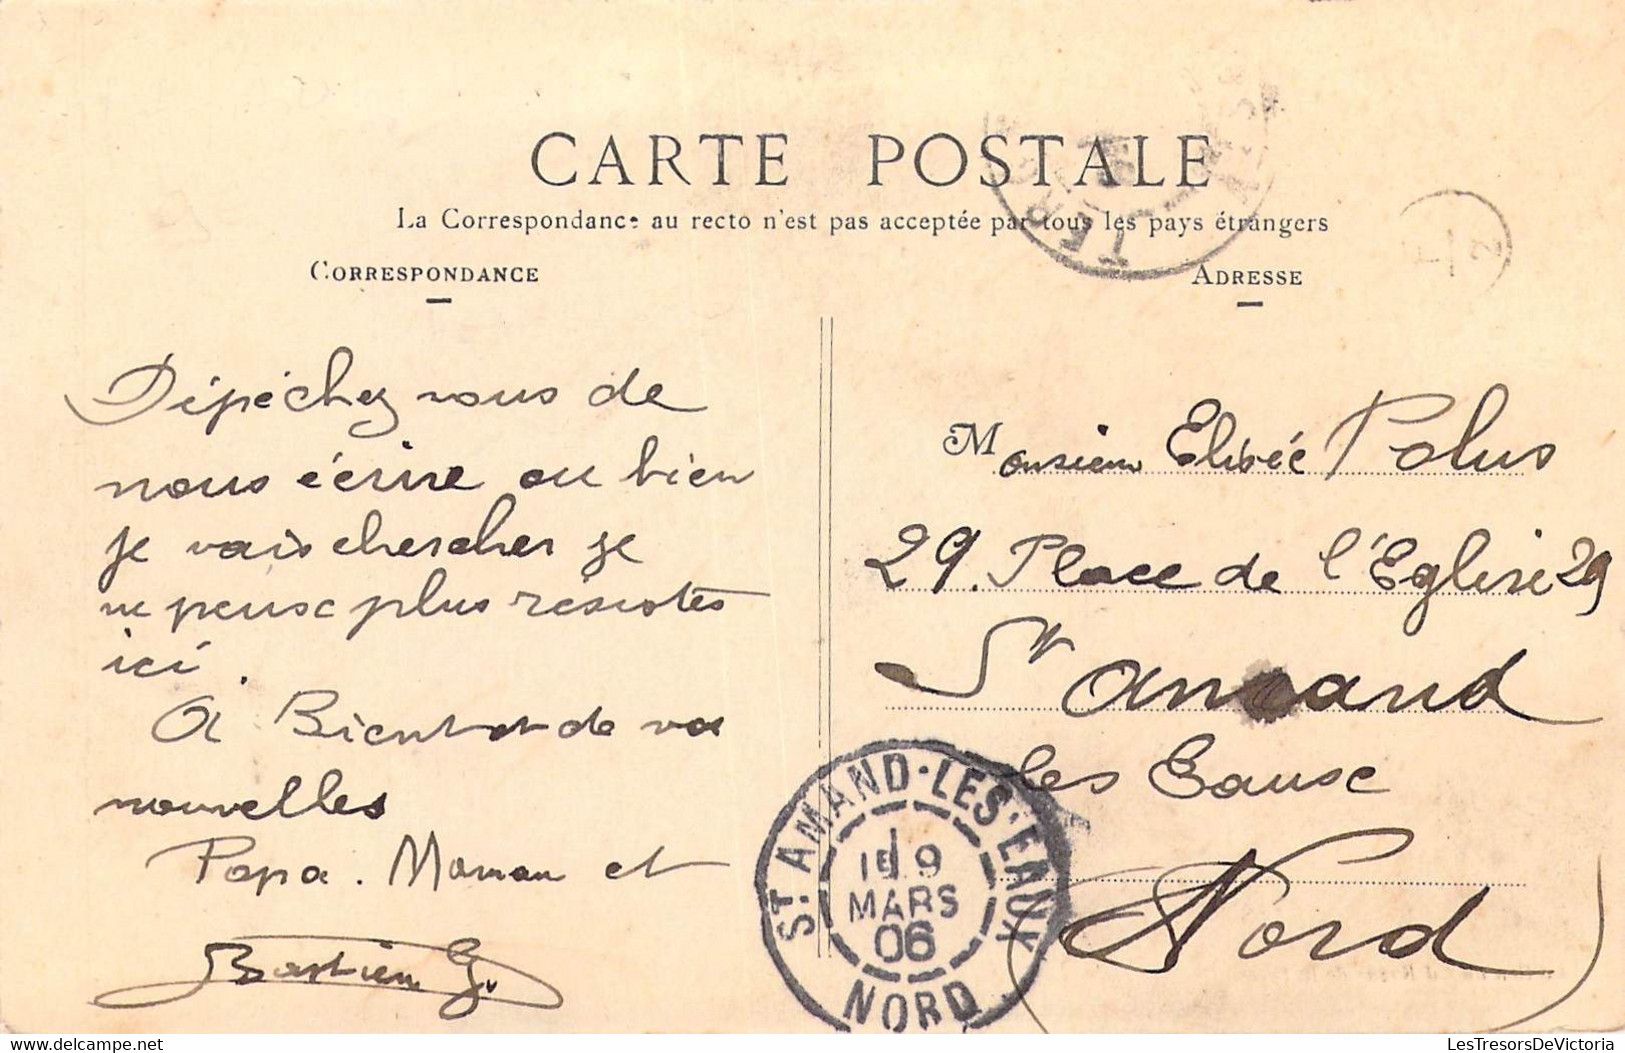 CARTE POSTALE
La Correspondance au recto n'est pas acceptée par tous les pays étrangers
CORRESPONDANCE
Dépéchez vous de
nous écrire ou bien
je vais chercher je
ne peuse plus résister
ici.
A Bientot de vos
nouvelles
Papa. Maman et
Bastien
ADRESSE
Monsieur Elisée Polus
29. Place de l'Eglise 29
St Amand
les Eause
Nord
ST AMAND-LES-EAUX
1E 9
MARS
06
NORD
TER
LesTresorsDeVictoria
www.delcampe.net